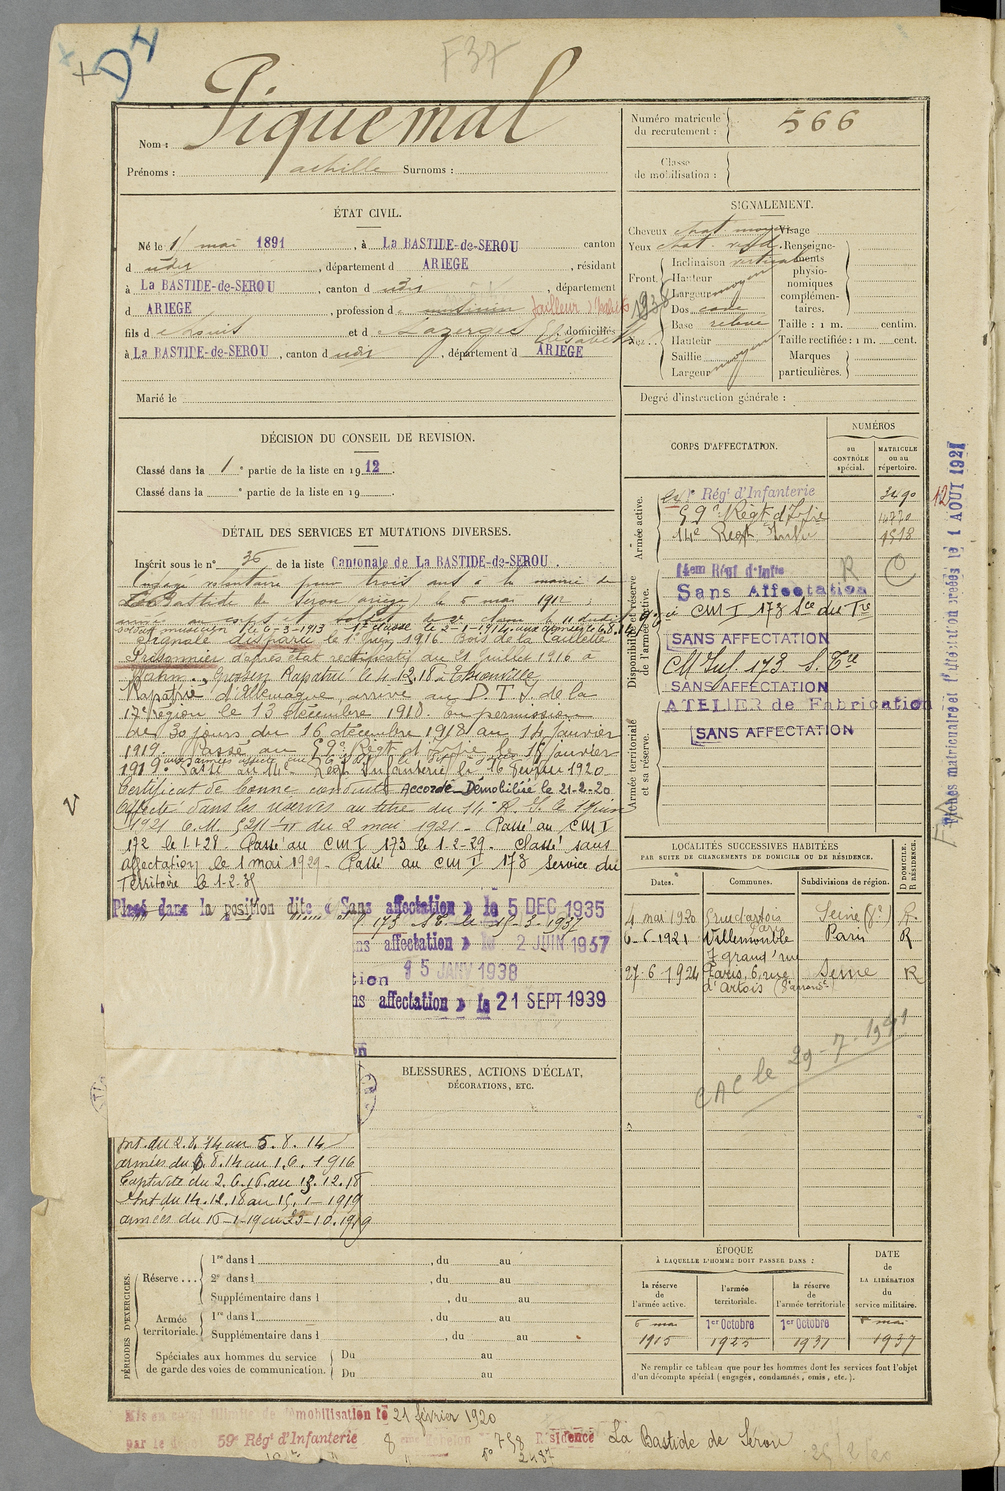 F37
Nom : Piquemal
Prénoms : achille Surnoms :
ÉTAT CIVIL.
Né le 1 mai 1891, à La BASTIDE-de-SEROU canton
d udir, département d ARIEGE, résidant
à La BASTIDE-de-SEROU, canton d udir, département
d ARIEGE, profession d musicien tailleur d'habits 1938
fils d Louis et d Lazerges Elisabeth domiciliés
à La BASTIDE-de-SEROU, canton d udir, département d ARIEGE
Marié le
DÉCISION DU CONSEIL DE REVISION.
Classé dans la 1e partie de la liste en 1912.
Classé dans la e partie de la liste en 19 .
DÉTAIL DES SERVICES ET MUTATIONS DIVERSES.
Inscrit sous le n° 36 de la liste Cantonale de La BASTIDE-de-SEROU.
Engagé volontaire pour trois ans à la mairie de
La Bastide de Serou ariege, le 6 mai 1912
soldat musicien le 6-3-1913
Signalé disparu le 1er Juin 1916 Bois de la Caillette
Prisonnier d'après état rectificatif du 21 Juillet 1916 à
Hahn, Grossen Rapatrié le 4.12.18 à Thionville
Rapatrié d'Allemagne, arrivé au D.T.I. de la
17e région le 13 décembre 1918. En permission
de 30 jours du 16 décembre 1918 au 14 janvier
1919. Passé au 59e Régt d'Infrie le 15 janvier
1919. Passé au 14e Régt Infanterie le 16 février 1920
Certificat de bonne conduite Accordé Démobilisé le 21-2-20
Affecté dans les réserves au titre du 14e R.I. le 1er juin
1921 C.M. 5211 1/11 du 2 mai 1921 - Passé au CM I
172 le 1.1.28. Passé au CM I 173 le 1.2-29. Classé sans
affectation le 1 mai 1929 - Passé au CM I 173 Service du
Territoire le 1-2-35
Placé dans la position dite « Sans affectation » le 5 DEC 1935
173 S.T. le 15-3-1937
ns affectation » le 2 JUIN 1937
tion 15 JANV 1938
ns affectation » le 21 SEPT 1939
BLESSURES, ACTIONS D'ÉCLAT,
DÉCORATIONS, ETC.
Int. du 2.8.14 au 5.8.14
armées du 6.8.14 au 1.6.1916
Captivité du 2.6.16 au 13.12.18
Int du 14.12.18 au 15.1-1919
armées du 16-1-19 au 23-10.1919
PÉRIODES D'EXERCICES.
Réserve ...
1re dans l , du au
2e dans l , du au
Supplémentaire dans l , du au
Armée territoriale.
1re dans l , du au
Supplémentaire dans l , du au
Spéciales aux hommes du service
de garde des voies de communication.
Du au
Du au
Numéro matricule du recrutement : 566
Classe de mobilisation :
SIGNALEMENT.
Cheveux chat moy Visage
Yeux chat
Front.
Inclinaison vertical
Hauteur moyen
Largeur
Nez.
Dos cave
Base relevé
Hauteur
Saillie moyen
Largeur
Renseignements physionomiques complémentaires.
Taille : 1 m. centim.
Taille rectifiée : 1 m. cent.
Marques particulières.
Degré d'instruction générale :
CORPS D'AFFECTATION.
NUMÉROS
au CONTRÔLE spécial.
MATRICULE ou au répertoire.
Armée active.
Régt d'Infanterie 3490
59e Régt d'Infrie
14e Regt Infie
Disponibilité et réserve de l'armée active.
14em Régt d'Infie R C
Sans Affectation
CM I 173 Sce du Tre
SANS AFFECTATION
CM Inf. 173 S. Tre
SANS AFFECTATION
ATELIER de Fabrication
Armée territoriale et sa réserve.
SANS AFFECTATION
LOCALITÉS SUCCESSIVES HABITÉES
PAR SUITE DE CHANGEMENTS DE DOMICILE OU DE RÉSIDENCE.
Dates. Communes. Subdivisions de région. D DOMICILE. R RÉSIDENCE.
4 mai 1920 6 rue d'artois Paris Seine R
6-6-1921 Villemomble 7 grand'rue Paris R
27-6-1924 Paris, 6, rue d'Artois Seine R
CAC le 29-7-1941
ÉPOQUE
À LAQUELLE L'HOMME DOIT PASSER DANS :
la réserve de l'armée active.
l'armée territoriale.
la réserve de l'armée territoriale
DATE DE LA LIBÉRATION du service militaire.
6 mai 1915
1er Octobre 1925
1er Octobre 1931
6 mai 1937
Ne remplir ce tableau que pour les hommes dont les services font l'objet
d'un décompte spécial (engagés, condamnés, omis, etc.).
Mis en congé illimité de démobilisation le 21 février 1920
par le 59e Régt d'Infanterie 8 échelon n° 758 Résidence La Bastide de Serou
Fiches matriculaire et d'affectation créées le 1 AOUT 1921